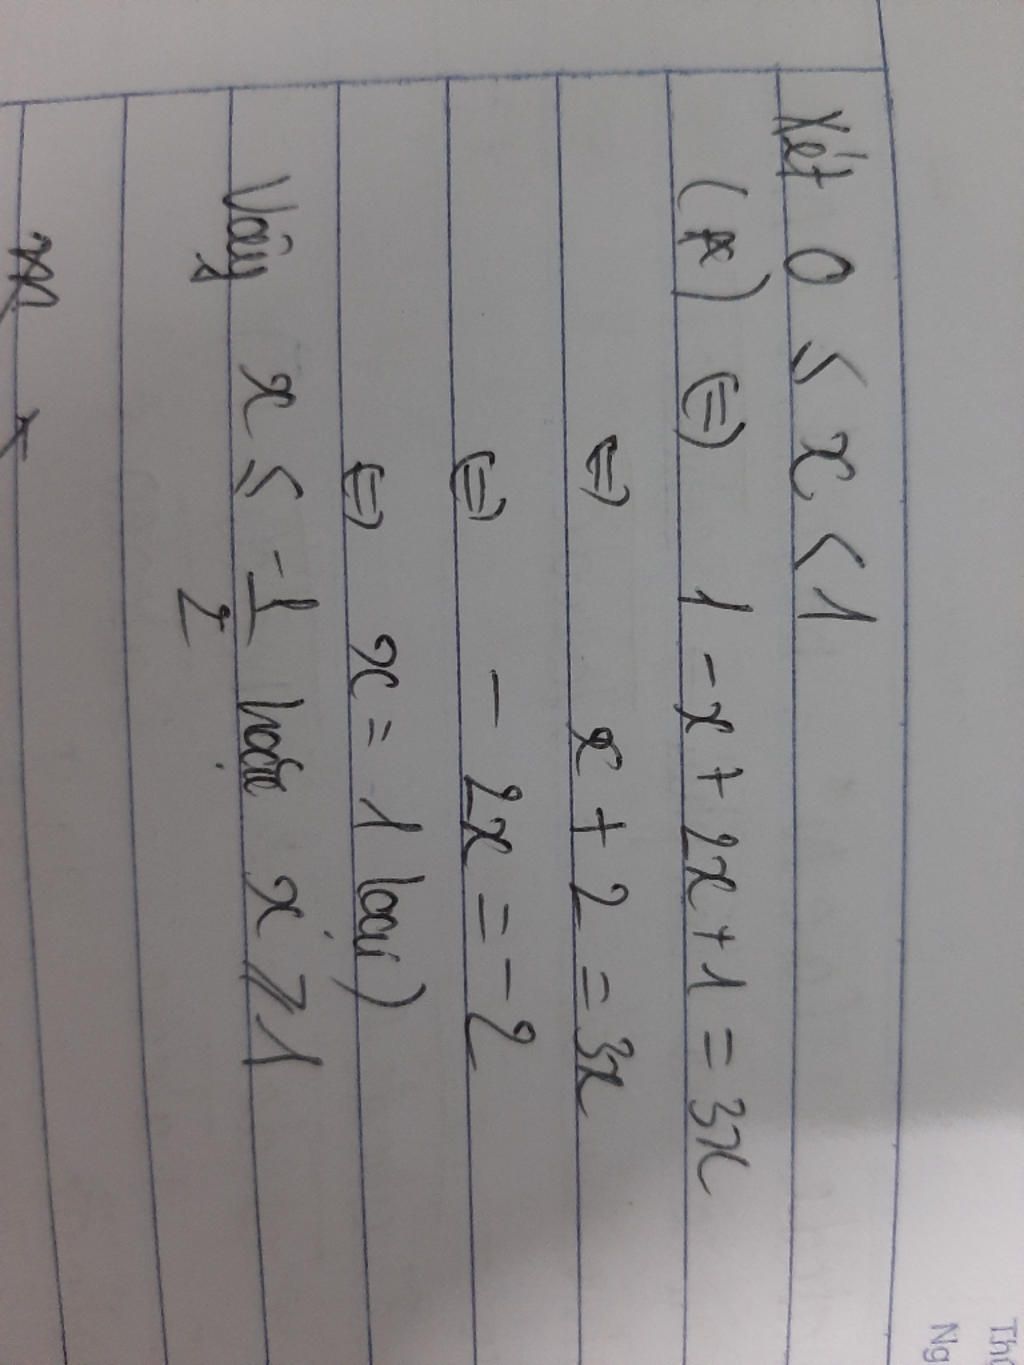 Xét 0 ≤ x < 1
(*) ⇔ 1 - x + 2x + 1 = 3x
⇔ x + 2 = 3x
⇔ - 2x = -2
⇔ x = 1 loại)
Vậy x ≤ -1/2 hoặc x ≥ 1
Thứ
Ng